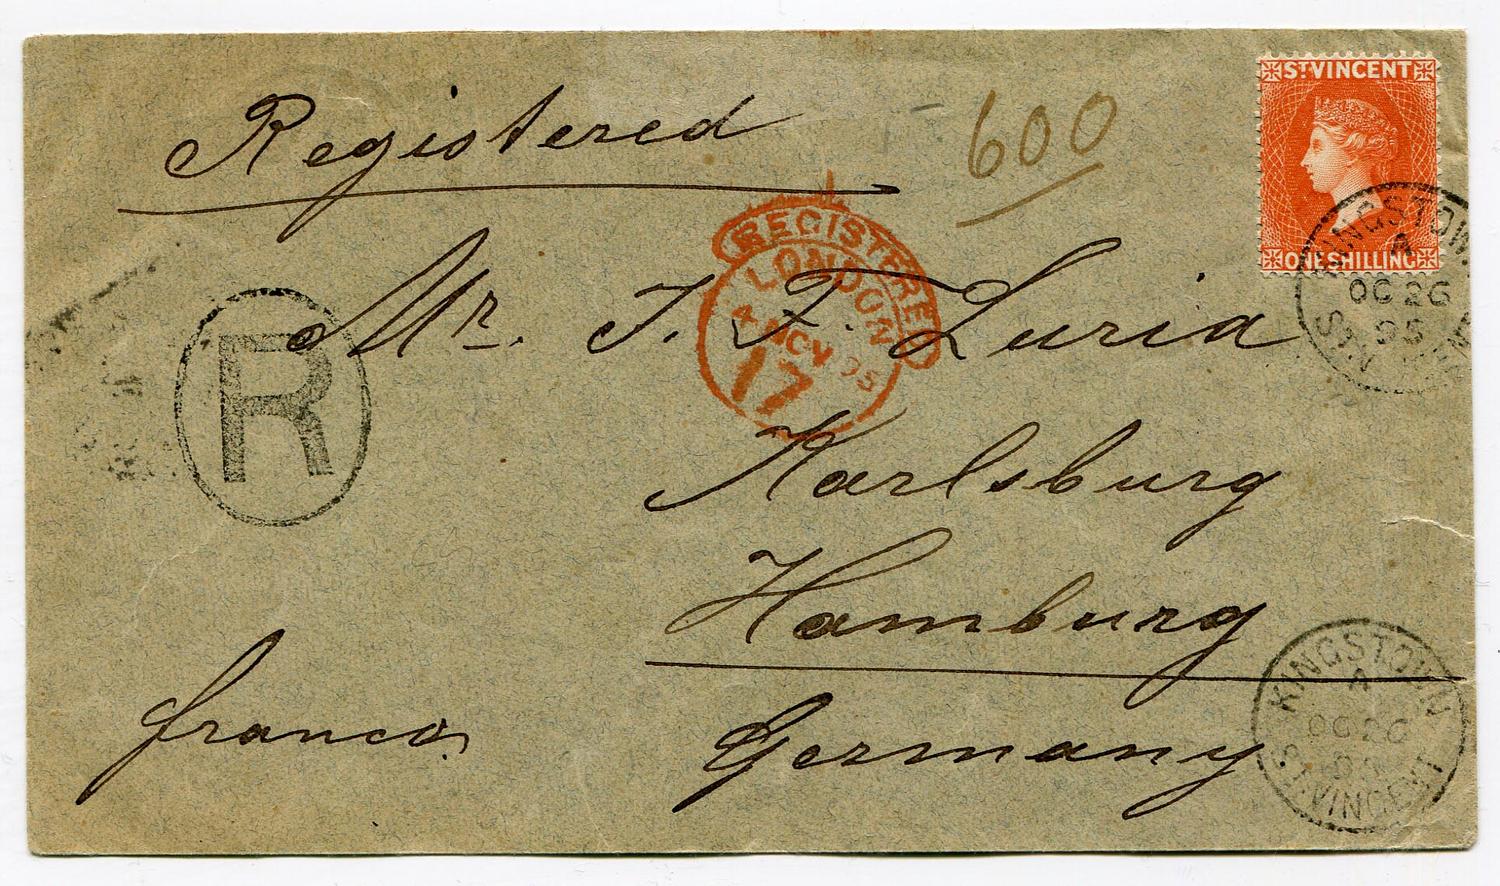 Registered
600
ST VINCENT
ONE SHILLING
KINGSTOWN
A
OC 26
95
ST. VINCENT
REGISTERED
LONDON
4 NOV 95
17
R
Mr. J. F. Luria
Karlsburg
Hamburg
Germany
franco
KINGSTOWN
A
OC 26
95
ST. VINCENT